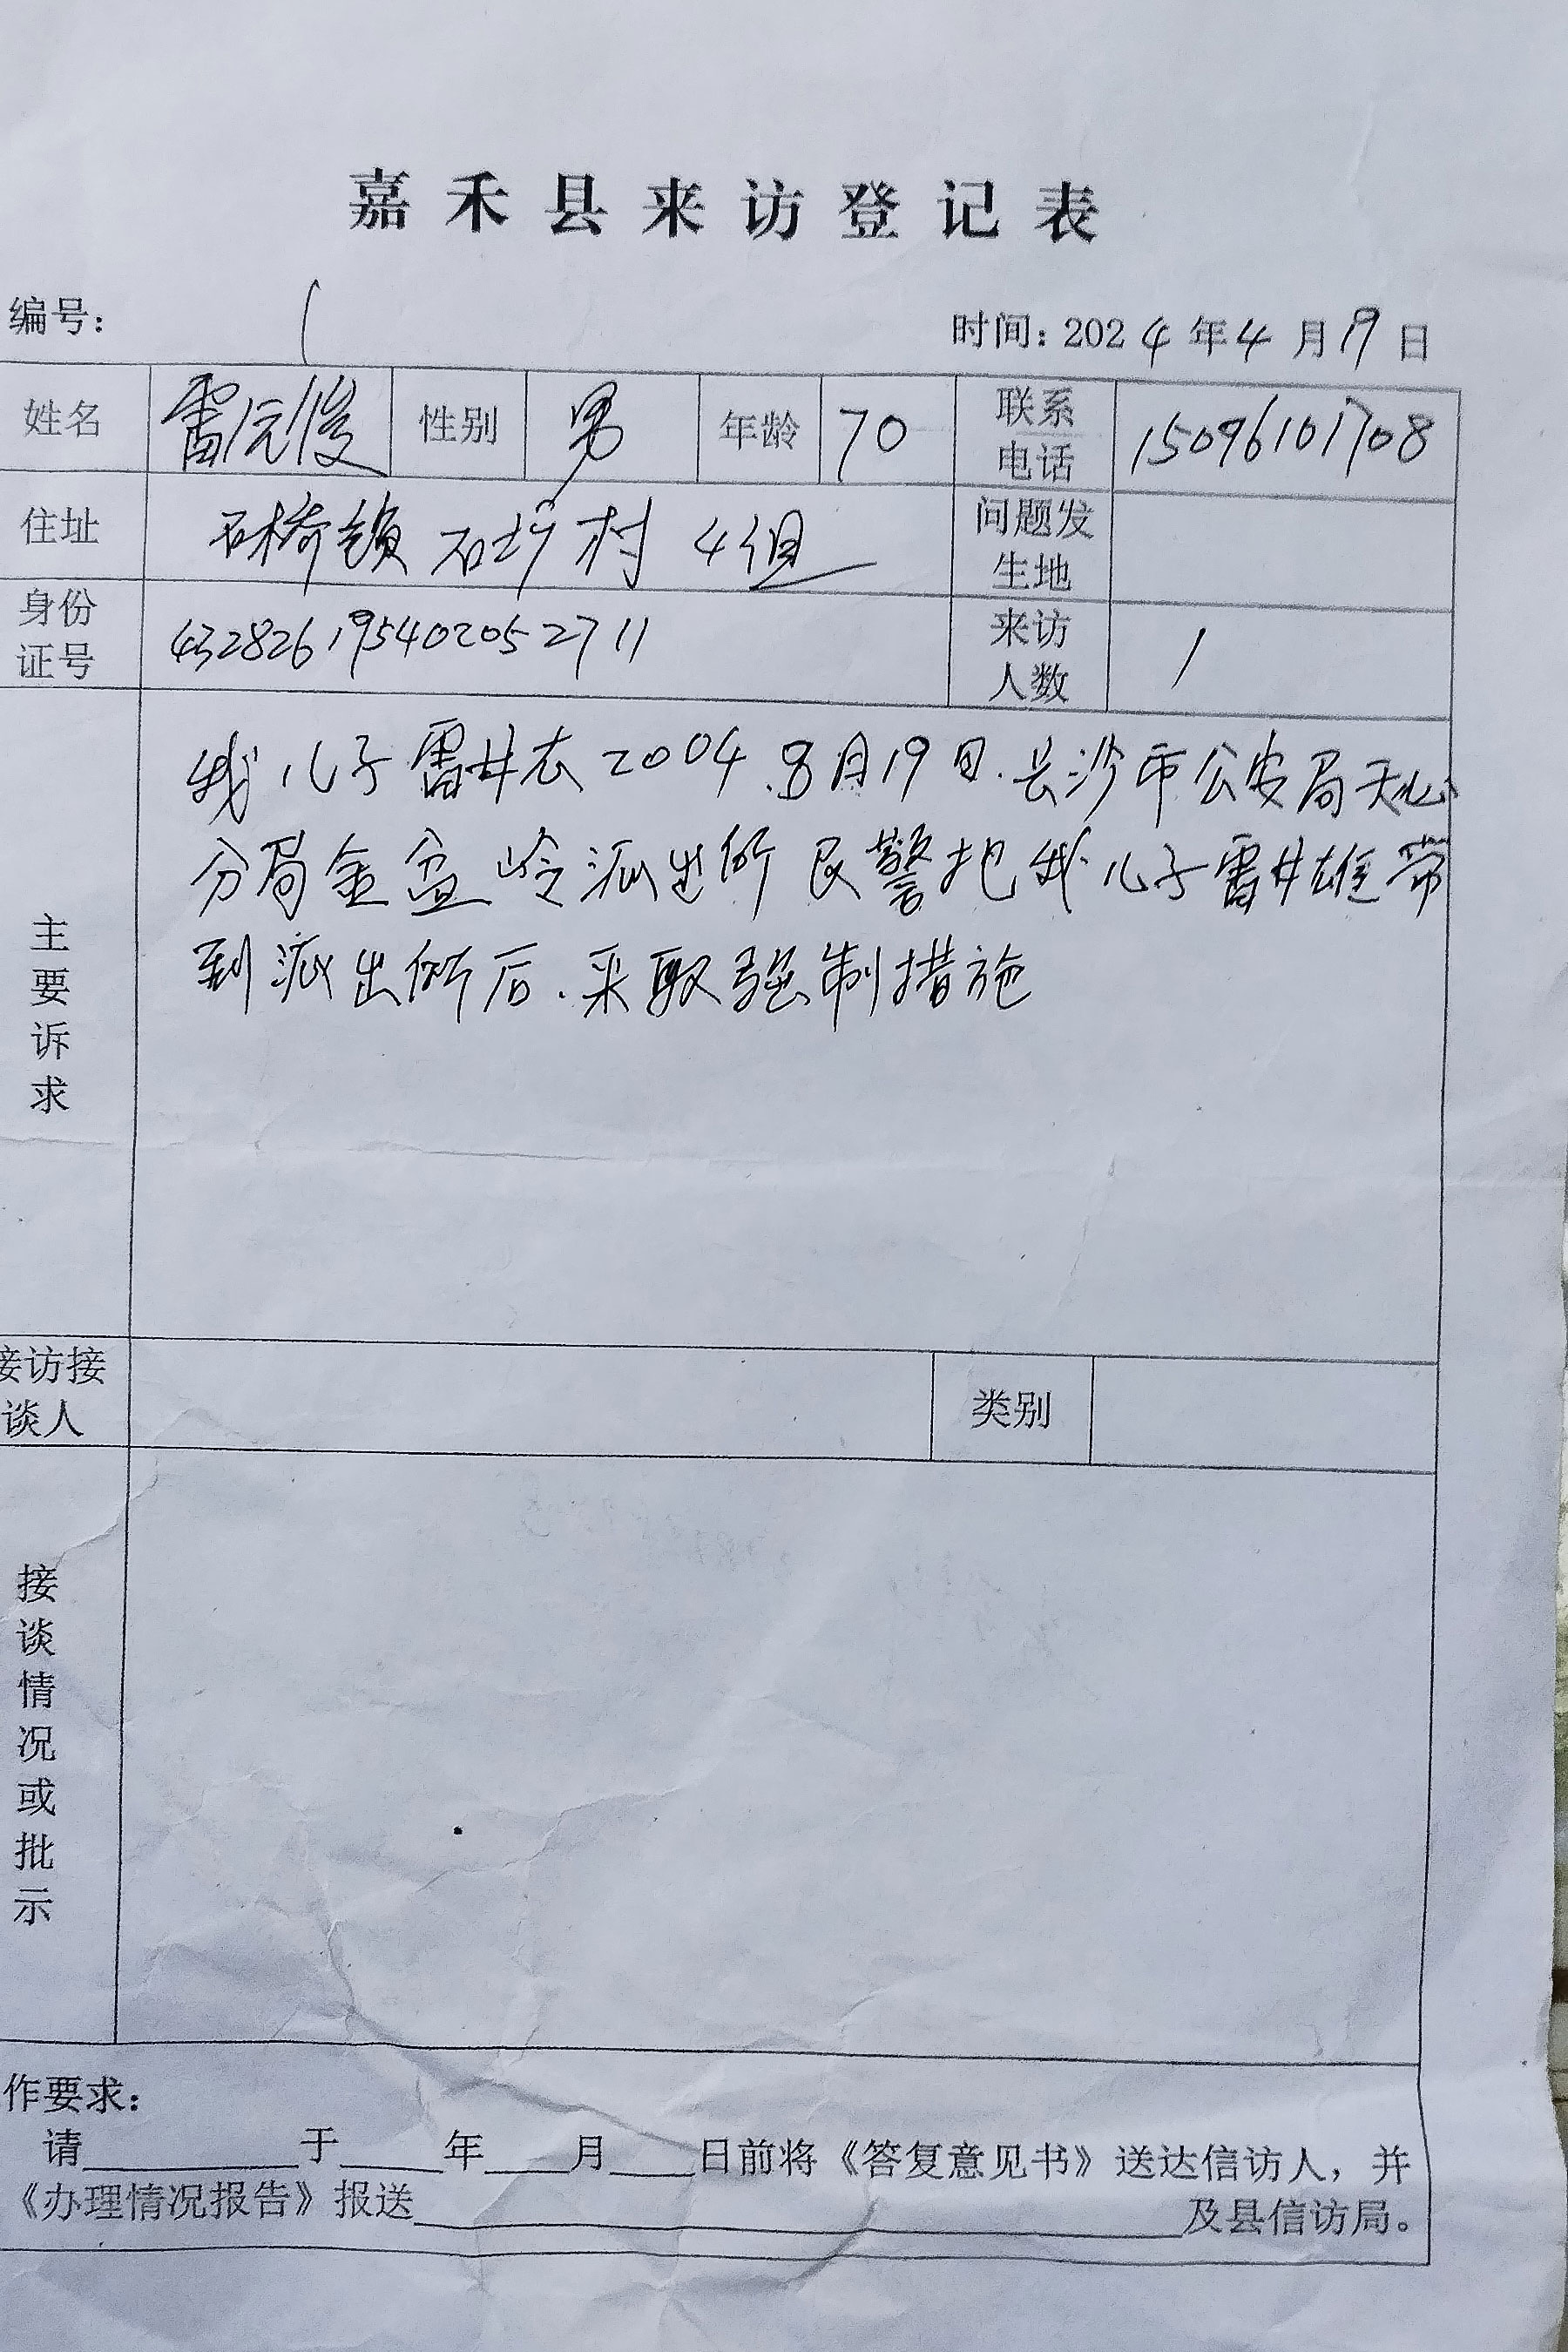 嘉禾县来访登记表
编号： 时间：2024年4月19日
姓名 雷 性别 男 年龄 70 联系电话 15096101708
住址 石桥镇 石圹村 4组 问题发生地
身份证号 432826195402052711 来访人数 1
主要诉求
我儿子雷井 2004.8月19日.长沙市公安局天心
分局金盆岭派出所民警把我儿子雷井雄带
到派出所后.采取强制措施
接访接谈人 类别
接谈情况或批示
作要求：
请____于____年____月____日前将《答复意见书》送达信访人，并
《办理情况报告》报送____及县信访局。